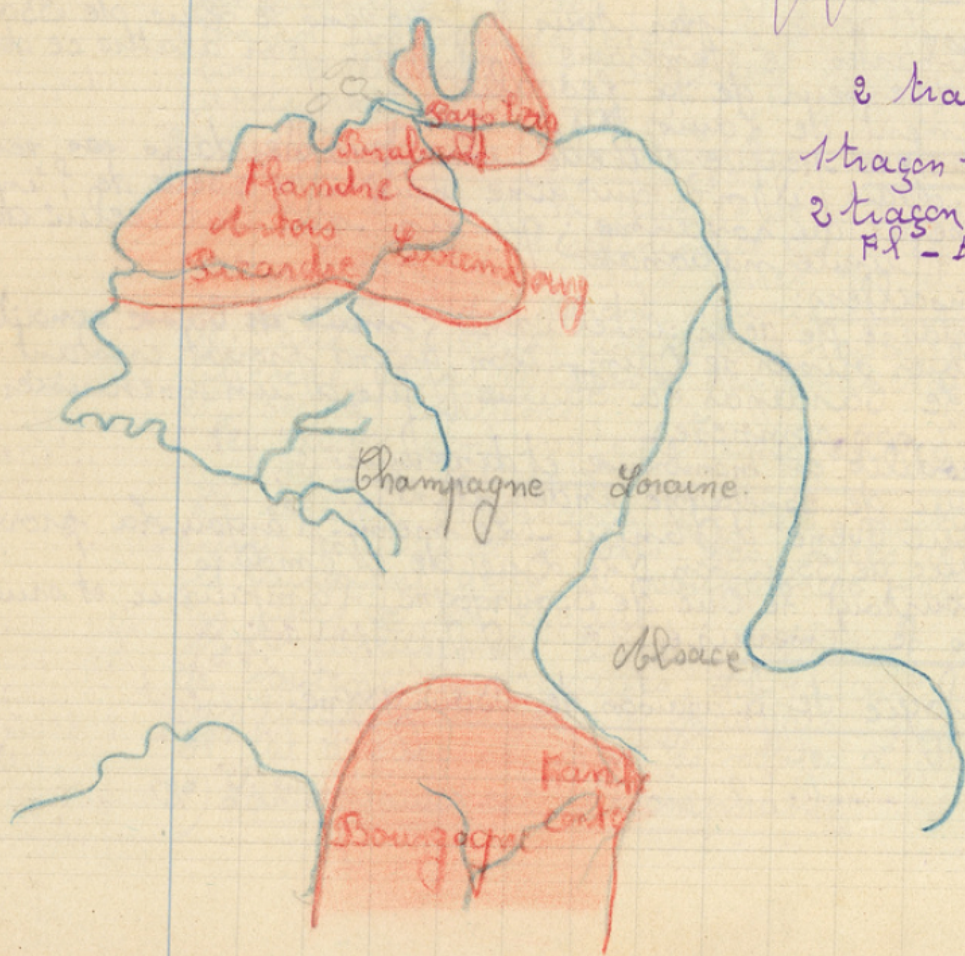 2 tra
1 traçon
2 traçon
Fl -
Pays Bas
Brabant
Flandre
Artois
Picardie
Luxembourg
Champagne
Loraine.
Alsace
Franche
comté
Bourgogne